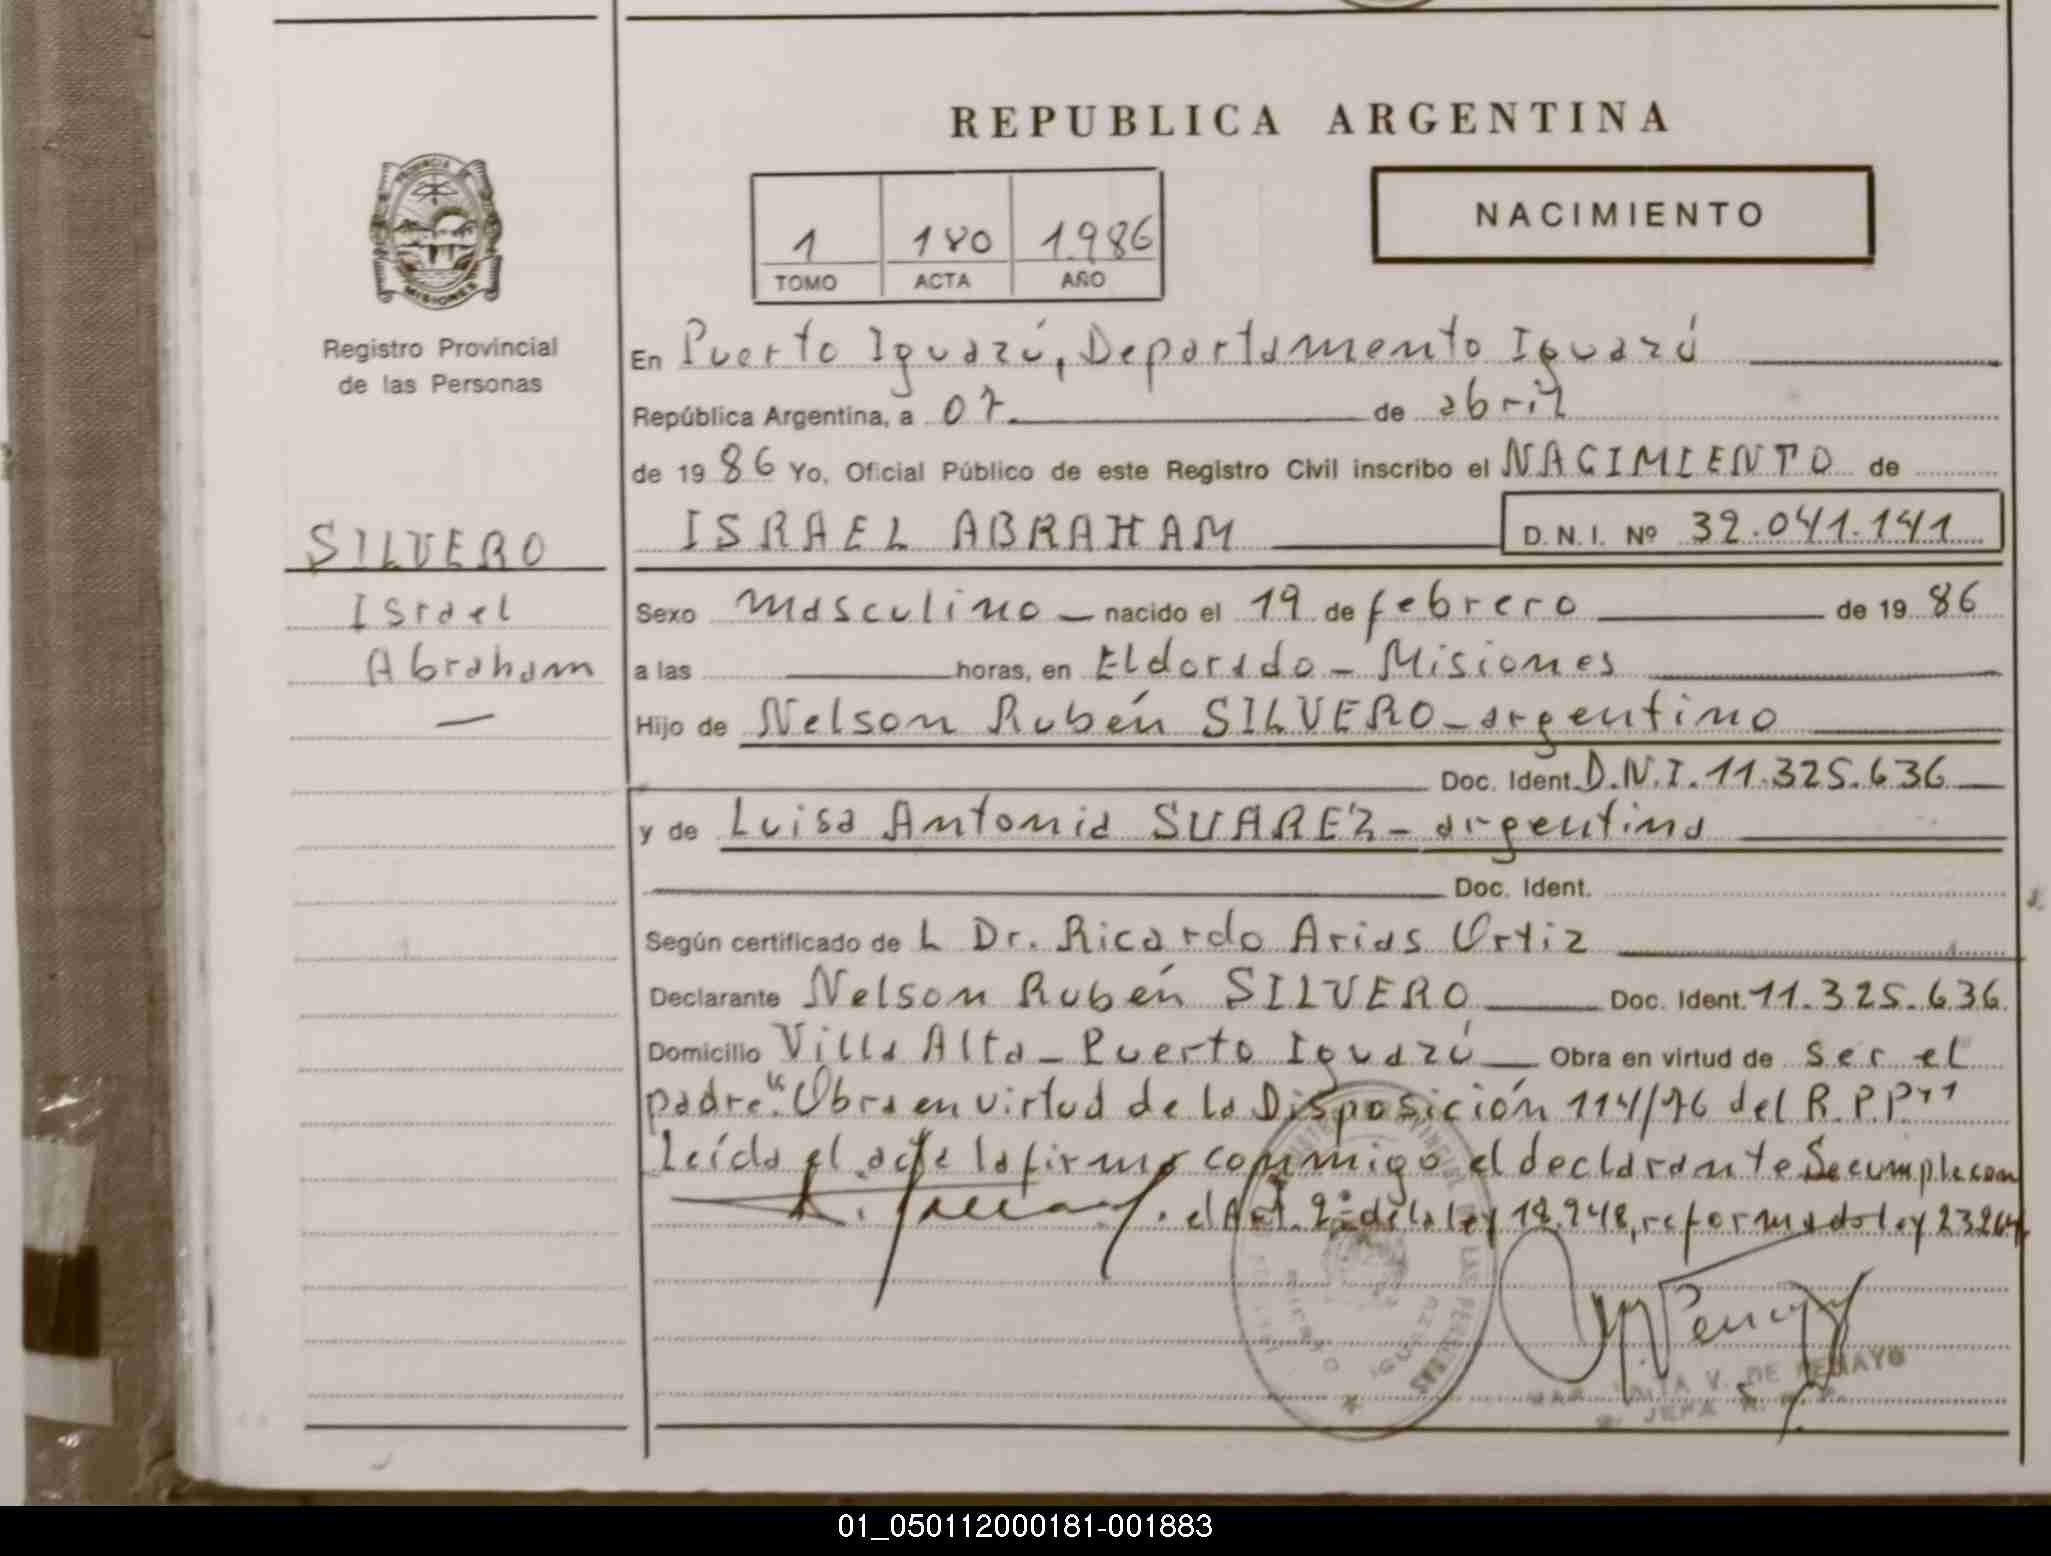 REPUBLICA ARGENTINA
PROVINCIA DE
MISIONES
Registro Provincial
de las Personas
1 180 1.986
TOMO ACTA AÑO
NACIMIENTO
En Puerto Iguazú, Departamento Iguazú
República Argentina, a 07 de abril
de 19 86 Yo, Oficial Público de este Registro Civil inscribo el NACIMIENTO de
SILVERO
Israel
Abraham
ISRAEL ABRAHAM D. N. I. Nº 32.041.141
Sexo masculino nacido el 19 de febrero de 19 86
a las horas, en Eldorado - Misiones
Hijo de Nelson Rubén SILVERO - argentino
Doc. Ident. D.N.I. 11.325.636
y de Luisa Antonia SUAREZ - argentina
Doc. Ident.
Según certificado de L Dr. Ricardo Arias Ortiz
Declarante Nelson Rubén SILVERO Doc. Ident. 11.325.636
Domicilio Villa Alta - Puerto Iguazú Obra en virtud de ser el
padre. "Obra en virtud de la Disposición 114/76 del R.P.P"
Leída el acta la firma conmigo el declarante Se cumple con
el Art. 2º de la ley 18.248, reformado ley 23264.
V. DE PENAYO
01_050112000181-001883